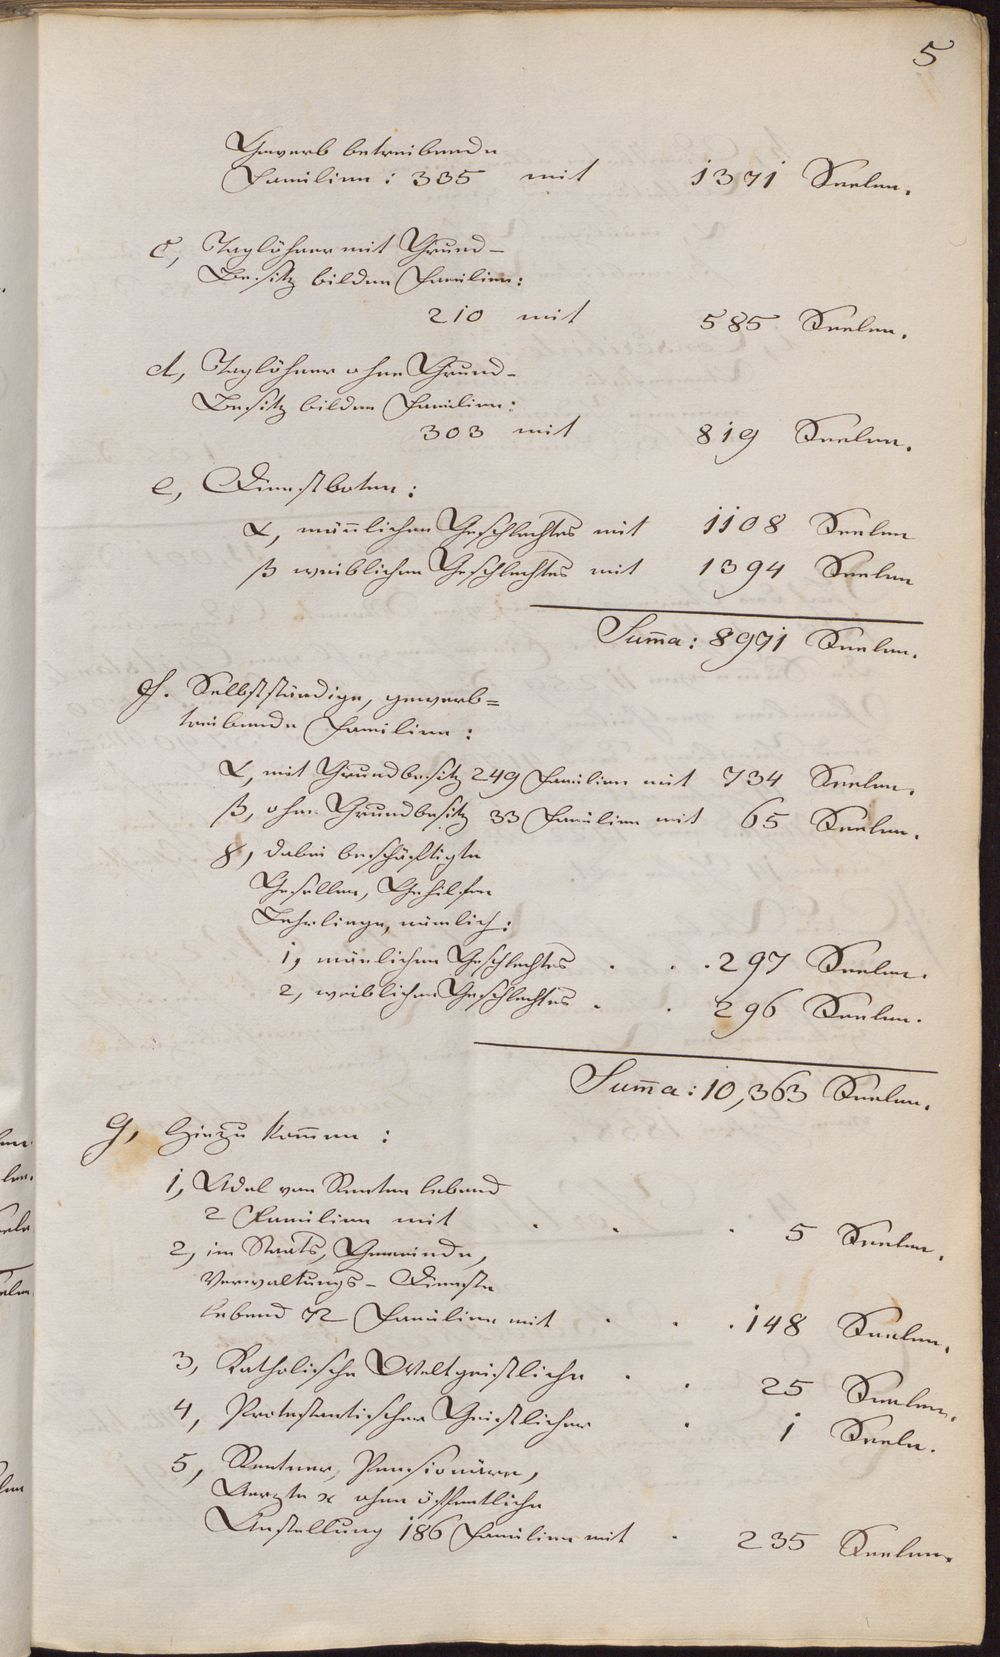 5
Gewerb betreibende
Familien: 335 mit 1371 Seelen.
c, Taglöhner mit Grund-
Besitz bilden Familien:
210 mit 585 Seelen.
d, Taglöhner ohne Grund-
Besitz bilden Familien:
303 mit 819 Seelen.
e, Dienstboten:
α, männlichen Geschlechtes mit 1108 Seelen
β weiblichen Geschlechtes mit 1394 Seelen
Sum̄a: 8971 Seelen.
f. Selbstständige, gewerb=
treibende Familien:
α, mit Grundbesitz 249 Familien mit 734 Seelen.
β, ohne Grundbesitz 33 Familien mit 65 Seelen.
γ, dabei beschäftigte
Gesellen, Gehilfen
Lehrlinge, nämlich:
1, mänlichen Geschlechtes . . . 297 Seelen.
2, weiblichen Geschlechtes . . 296 Seelen.
Sum̄a: 10,363 Seelen.
g, Hinzu kom̄en:
1, Adel von Renten lebend
2 Familien mit . . . 5 Seelen.
2, im Staats, Gemeinde,
Verwaltungs- Dienste
lebend 72 Familien mit . . . 148 Seelen.
3, Katholische Weltgeistliche . . 25 Seelen.
4, Protestantischer Geistlicher . 1 Seele.
5, Rentner, Pensionäre,
Aerzte x ohne öffentliche
Anstellung 186 Familien mit . 235 Seelen.